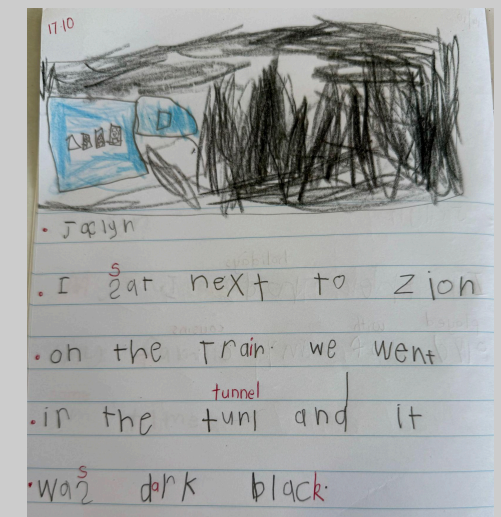 17.10
D
• Jaclyn
s
• I sat next to Zion
• on the Train. we went
tunnel
• in the tunl and it
s
• was dark black.